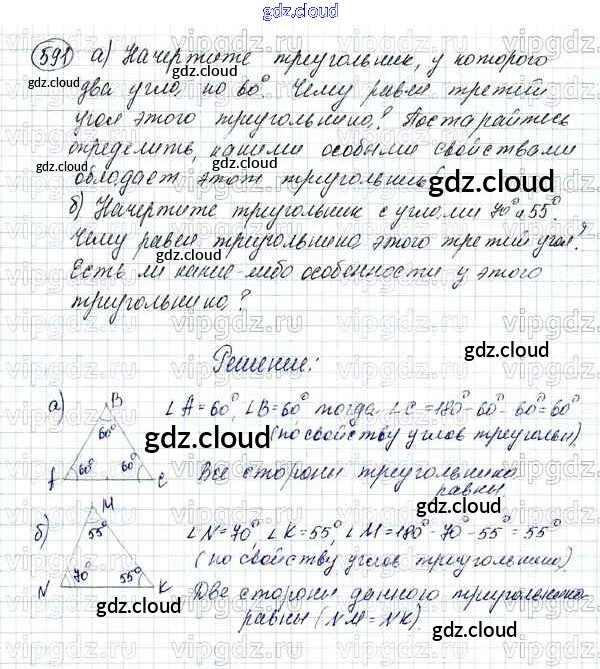 gdz.cloud
591 а) Начертите треугольник, у которого
два угла по 60°. Чему равен третий
угол этого треугольника? Постарайтесь
определить, какими особыми свойствами
обладает этот треугольник.
б) Начертите треугольник с углами 70° и 55°.
Чему равен треугольника этого третий угол?
Есть ли какие-либо особенности у этого
треугольника?
Решение:
а) B ∠A = 60°, ∠B = 60° тогда ∠C = 180° - 60° - 60° = 60°
60° (по свойству углов треугольн)
60° 60° C Все стороны треугольника
равны.
б) M 55° ∠N = 70°, ∠K = 55°, ∠M = 180° - 70° - 55° = 55°
(по свойству углов треугольника)
N 70° 55° K Две стороны данного треугольника
равны (NM = NK).
gdz.cloud
vipgdz.ru